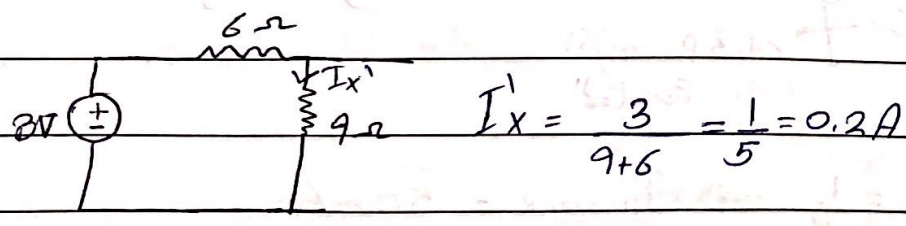 6 Ω
Ix'
3V
9 Ω
I'x = 3/(9+6) = 1/5 = 0.2A